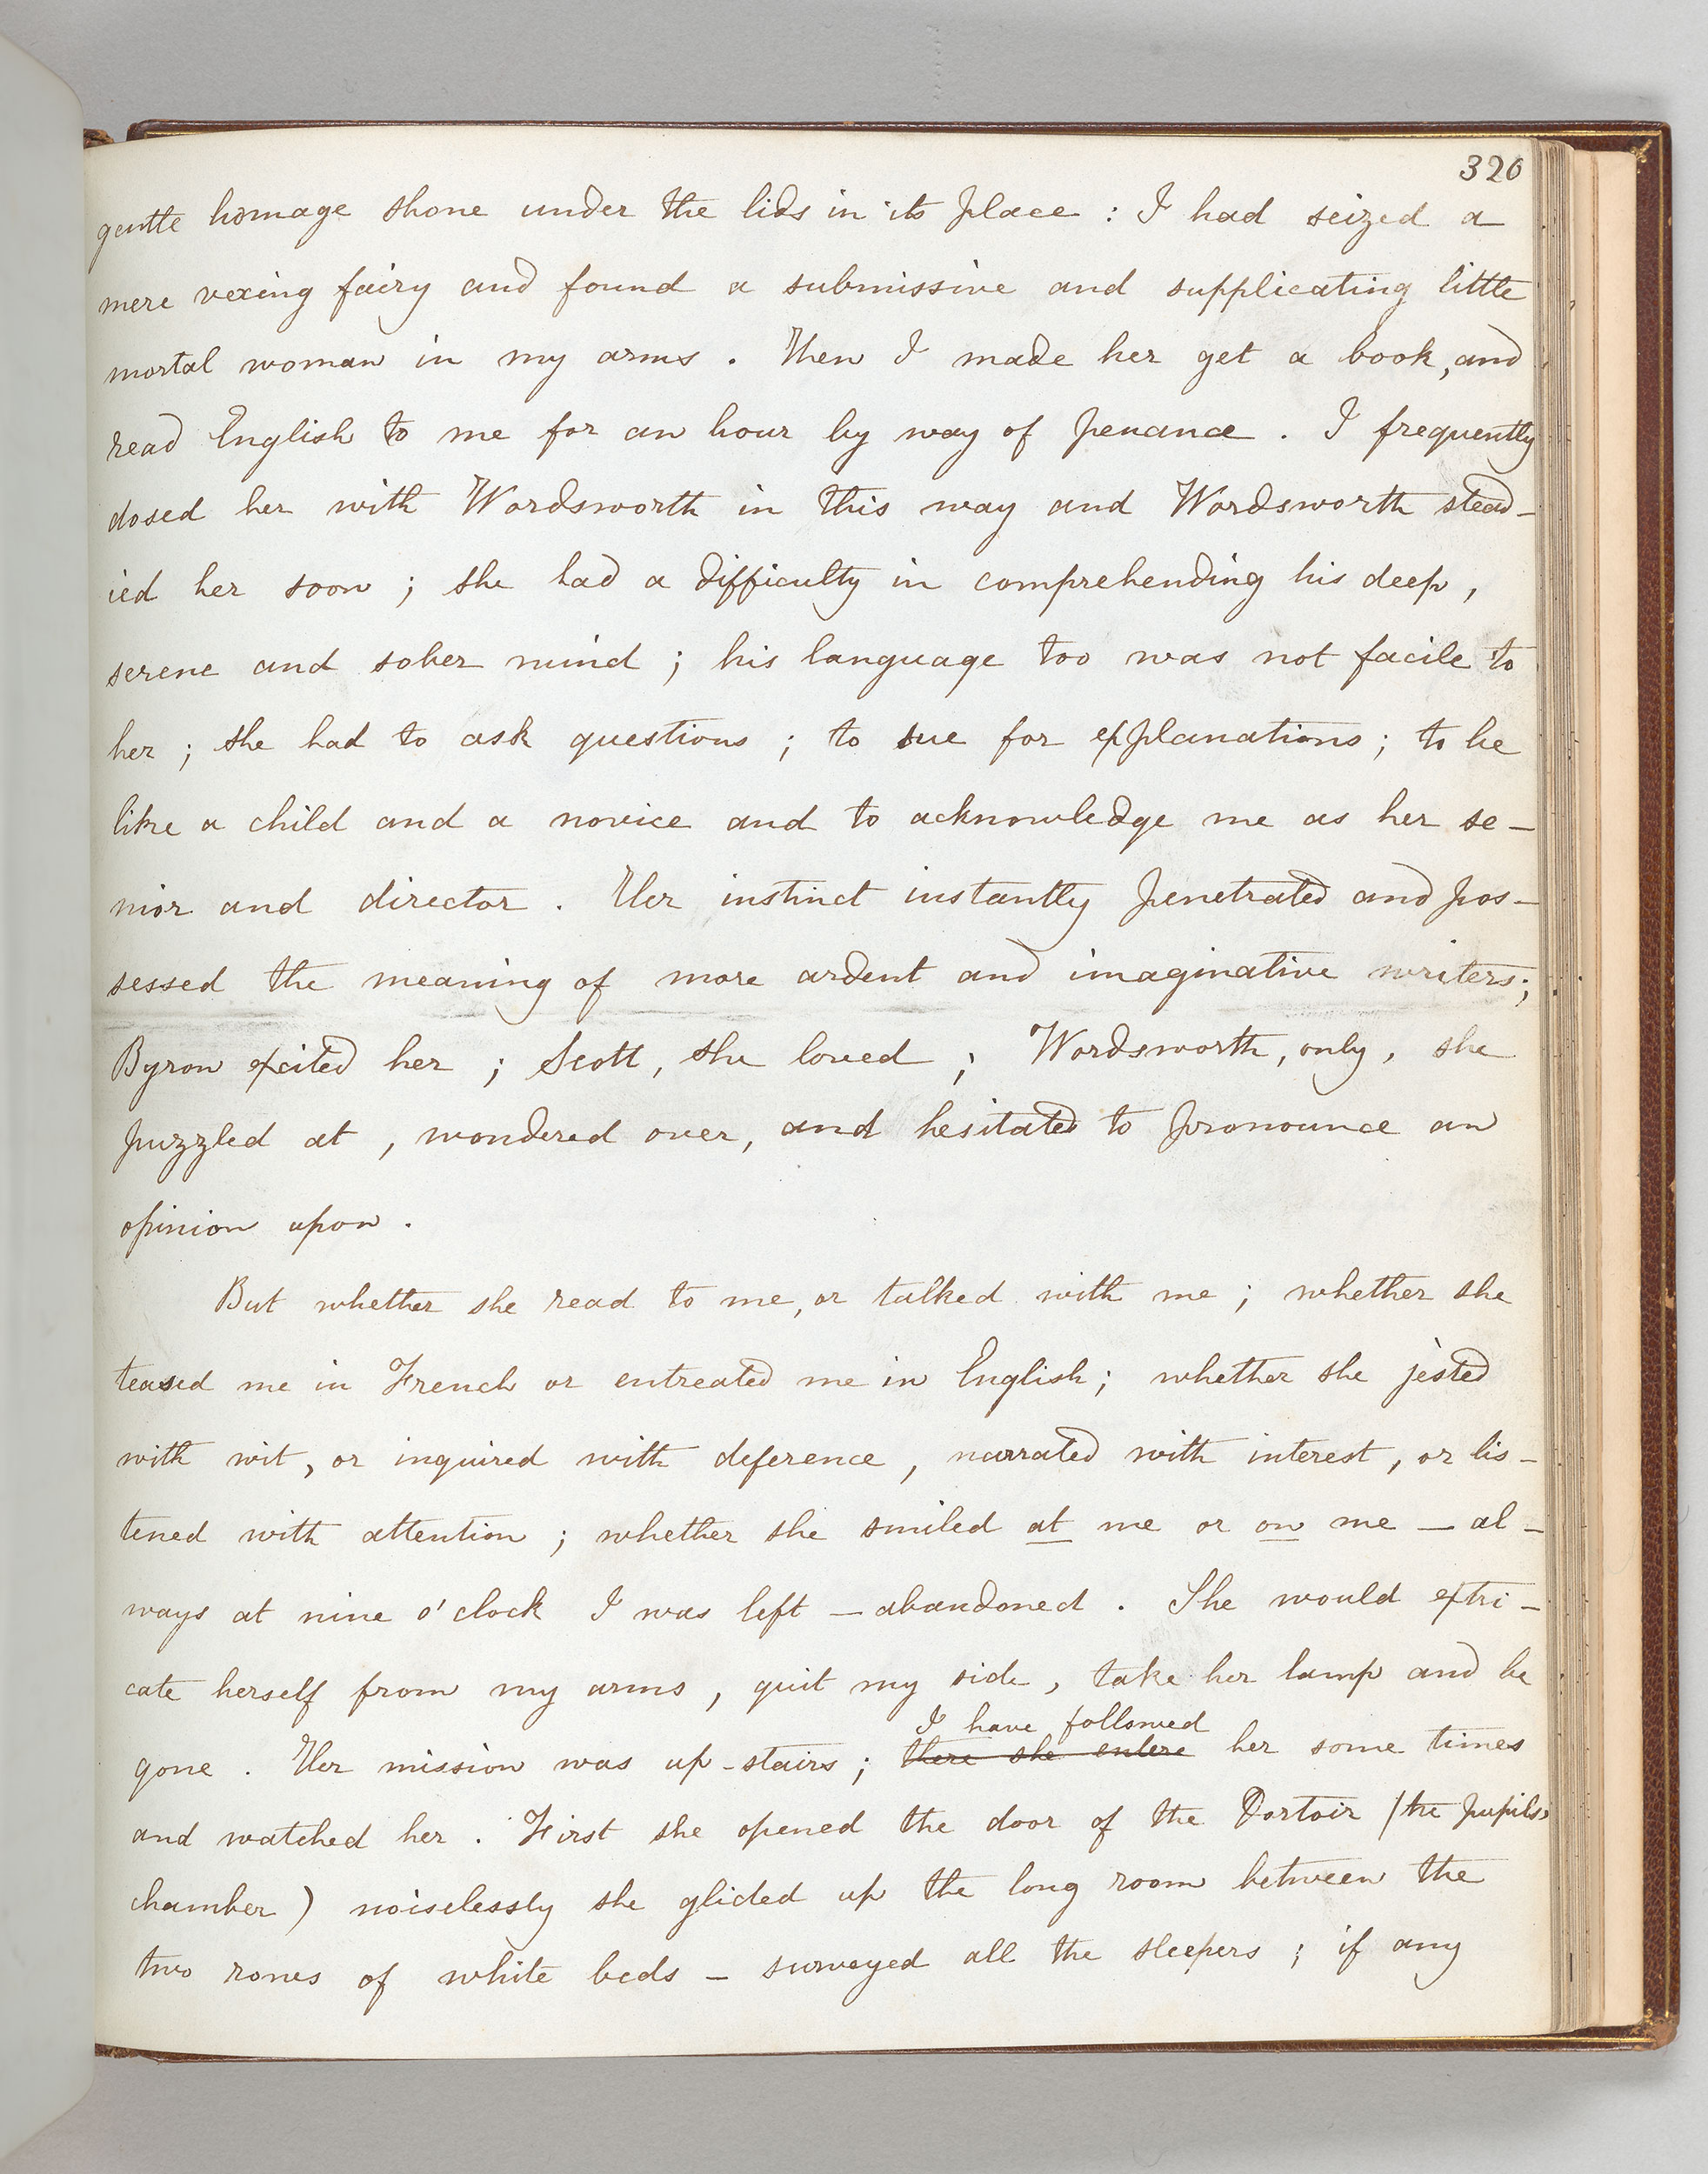 320
gentle homage shone under the lids in its place : I had seized a
mere vexing fairy and found a submissive and supplicating little
mortal woman in my arms . Then I made her get a book, and
read English to me for an hour by way of penance . I frequently
dosed her with Wordsworth in this way and Wordsworth stead-
ied her soon ; she had a difficulty in comprehending his deep ,
serene and sober mind ; his language too was not facile to
her ; she had to ask questions ; to sue for explanations ; to be
like a child and a novice and to acknowledge me as her se-
nior and director . Her instinct instantly penetrated and pos-
sessed the meaning of more ardent and imaginative writers ;
Byron excited her ; Scott, she loved ; Wordsworth, only, she
puzzled at , wondered over, and hesitated to pronounce an
opinion upon .
But whether she read to me, or talked with me ; whether she
teased me in French or entreated me in English ; whether she jested
with wit, or inquired with deference , narrated with interest , or lis-
tened with attention ; whether she smiled at me or on me — al-
ways at nine o'clock I was left — abandoned . She would extri-
cate herself from my arms , quit my side , take her lamp and be
I have followed
gone . Her mission was up-stairs ; there she entere her some times
and watched her . First she opened the door of the Dortoir (the pupils'
chamber ) noiselessly she glided up the long room between the
two rows of white beds — surveyed all the sleepers ; if any